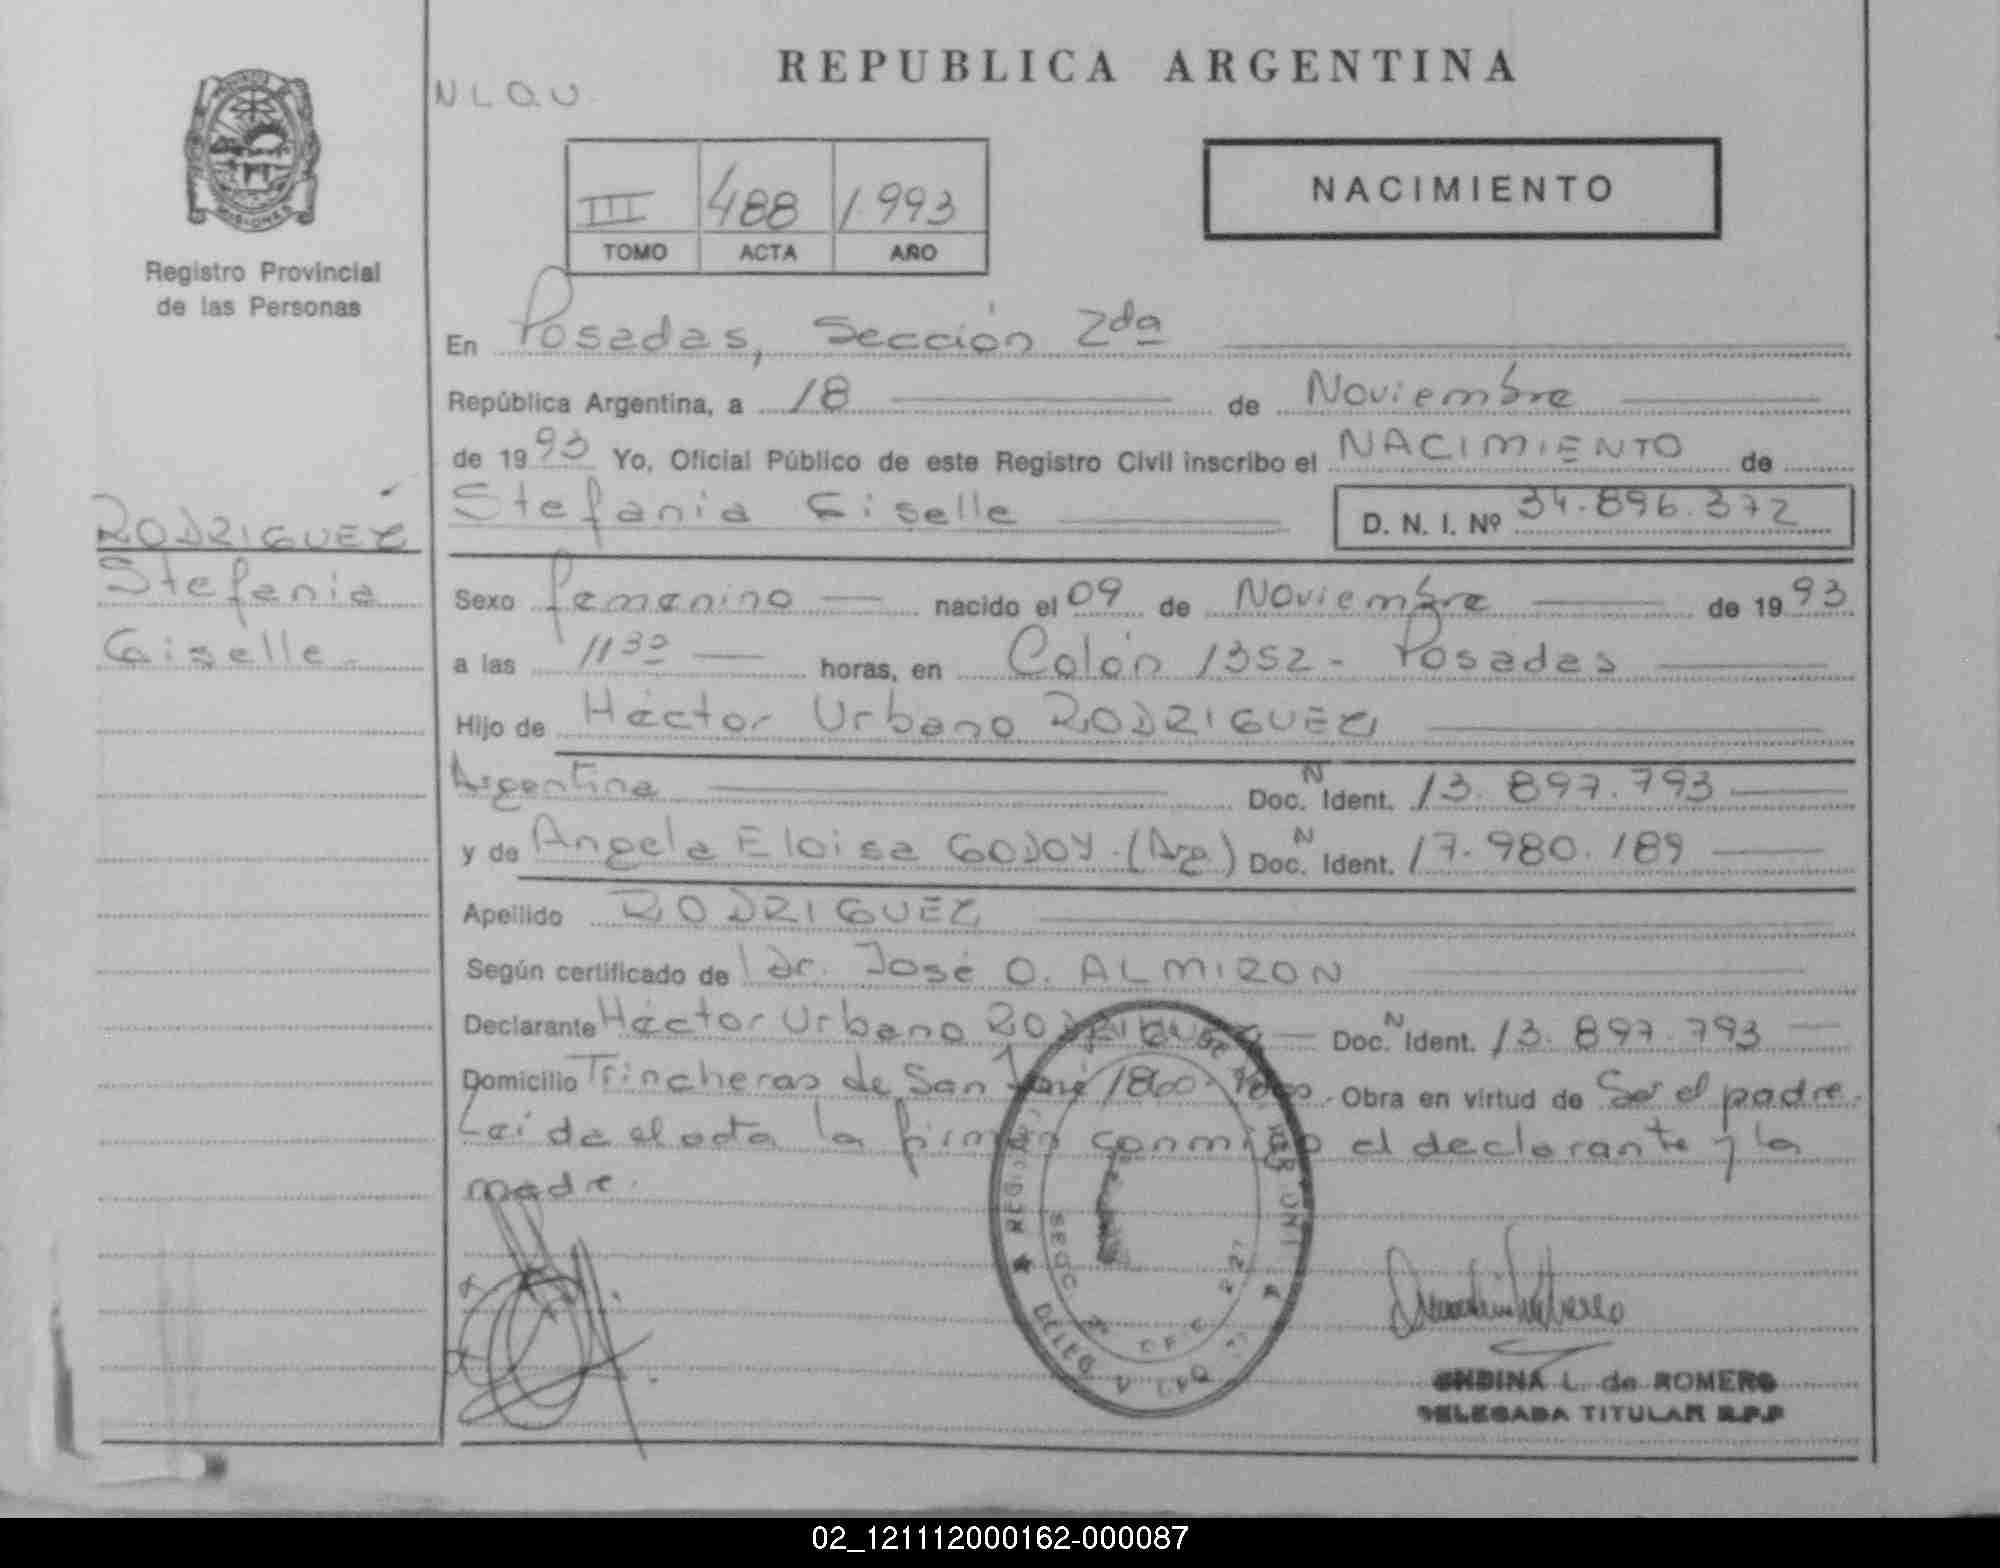 REPUBLICA ARGENTINA
N L Q U
MISIONES
Registro Provincial
de las Personas
III 488 1993
TOMO ACTA AÑO
NACIMIENTO
En Posadas, Sección 2da
República Argentina, a 18 de Noviembre
de 1993 Yo, Oficial Público de este Registro Civil inscribo el NACIMIENTO de
Stefania Giselle D. N. I. Nº 34.896.372
RODRIGUEZ
Stefania
Giselle
Sexo femenino nacido el 09 de Noviembre de 1993
a las 11 30 horas, en Colón 1352 - Posadas
Hijo de Héctor Urbano RODRIGUEZ
Argentina Doc. N Ident. 13.897.793
y de Angela Eloisa GODOY. (Arg.) Doc. N Ident. 17.980.189
Apellido RODRIGUEZ
Según certificado de Dr. José O. ALMIRON
Declarante Héctor Urbano RODRIGUEZ Doc. N Ident. 13.897.793
Domicilio Trincheras de San José 1860 - Pdas. Obra en virtud de Ser el padre.
Leída el acta la firman conmigo el declarante y la
madre.
SECC 2ª OFIC 227
DELEG
ONDINA L. de ROMERO
DELEGADA TITULAR R.P.P
02_121112000162-000087